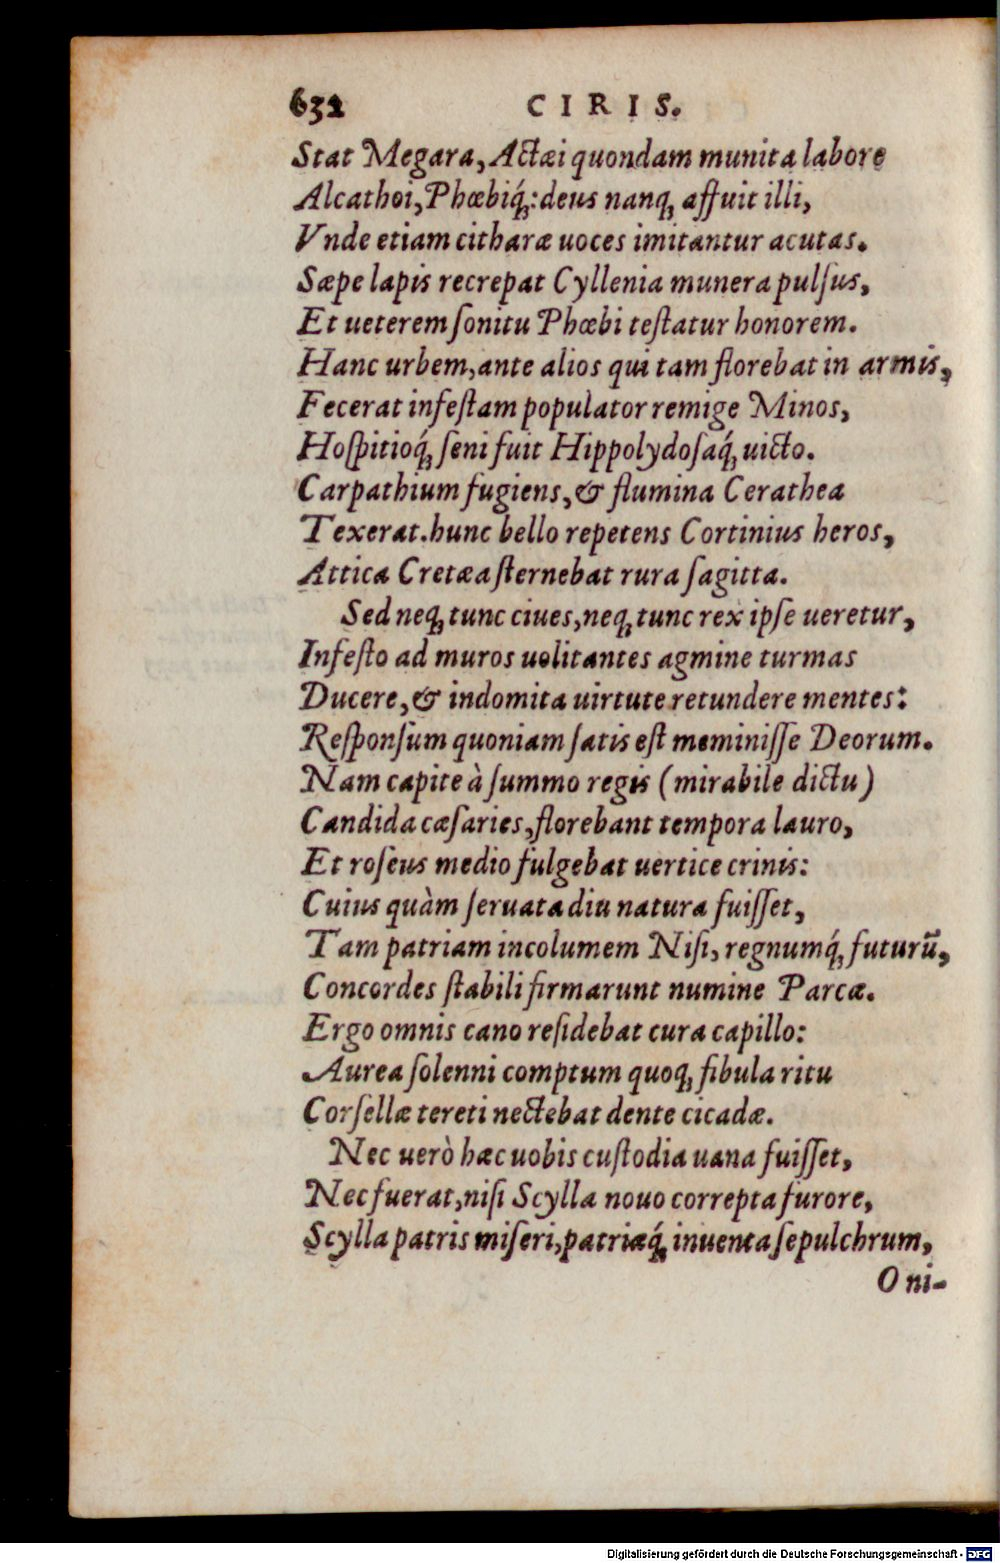 632 CIRIS.
Stat Megara, Actæi quondam munita labore
Alcathoi, Phœbiq́;: deus nanq; affuit illi,
Vnde etiam citharæ uoces imitantur acutas.
Sæpe lapis recrepat Cyllenia munera pulſus,
Et ueterem ſonitu Phœbi teſtatur honorem.
Hanc urbem, ante alios qui tam florebat in armis,
Fecerat infeſtam populator remige Minos,
Hoſpitioq́; ſeni fuit Hippolydoſaq́; uicto.
Carpathium fugiens, & flumina Cerathea
Texerat. hunc bello repetens Cortinius heros,
Attica Cretæa ſternebat rura ſagitta.
Sed neq; tunc ciues, neq; tunc rex ipſe ueretur,
Infeſto ad muros uolitantes agmine turmas
Ducere, & indomita uirtute retundere mentes:
Reſponſum quoniam ſatis eſt meminiſſe Deorum.
Nam capite à ſummo regis (mirabile dictu)
Candida cæſaries, florebant tempora lauro,
Et roſeus medio fulgebat uertice crinis:
Cuius quàm ſeruata diu natura fuiſſet,
Tam patriam incolumem Niſi, regnumq́; futurū,
Concordes ſtabili firmarunt numine Parcæ.
Ergo omnis cano reſidebat cura capillo:
Aurea ſolenni comptum quoq; fibula ritu
Corſellæ tereti nectebat dente cicadæ.
Nec uerò hæc uobis cuſtodia uana fuiſſet,
Nec fuerat, niſi Scylla nouo correpta furore,
Scylla patris miſeri, patriæq́; inuenta ſepulchrum,
O ni-
Digitalisierung gefördert durch die Deutsche Forschungsgemeinschaft - DFG